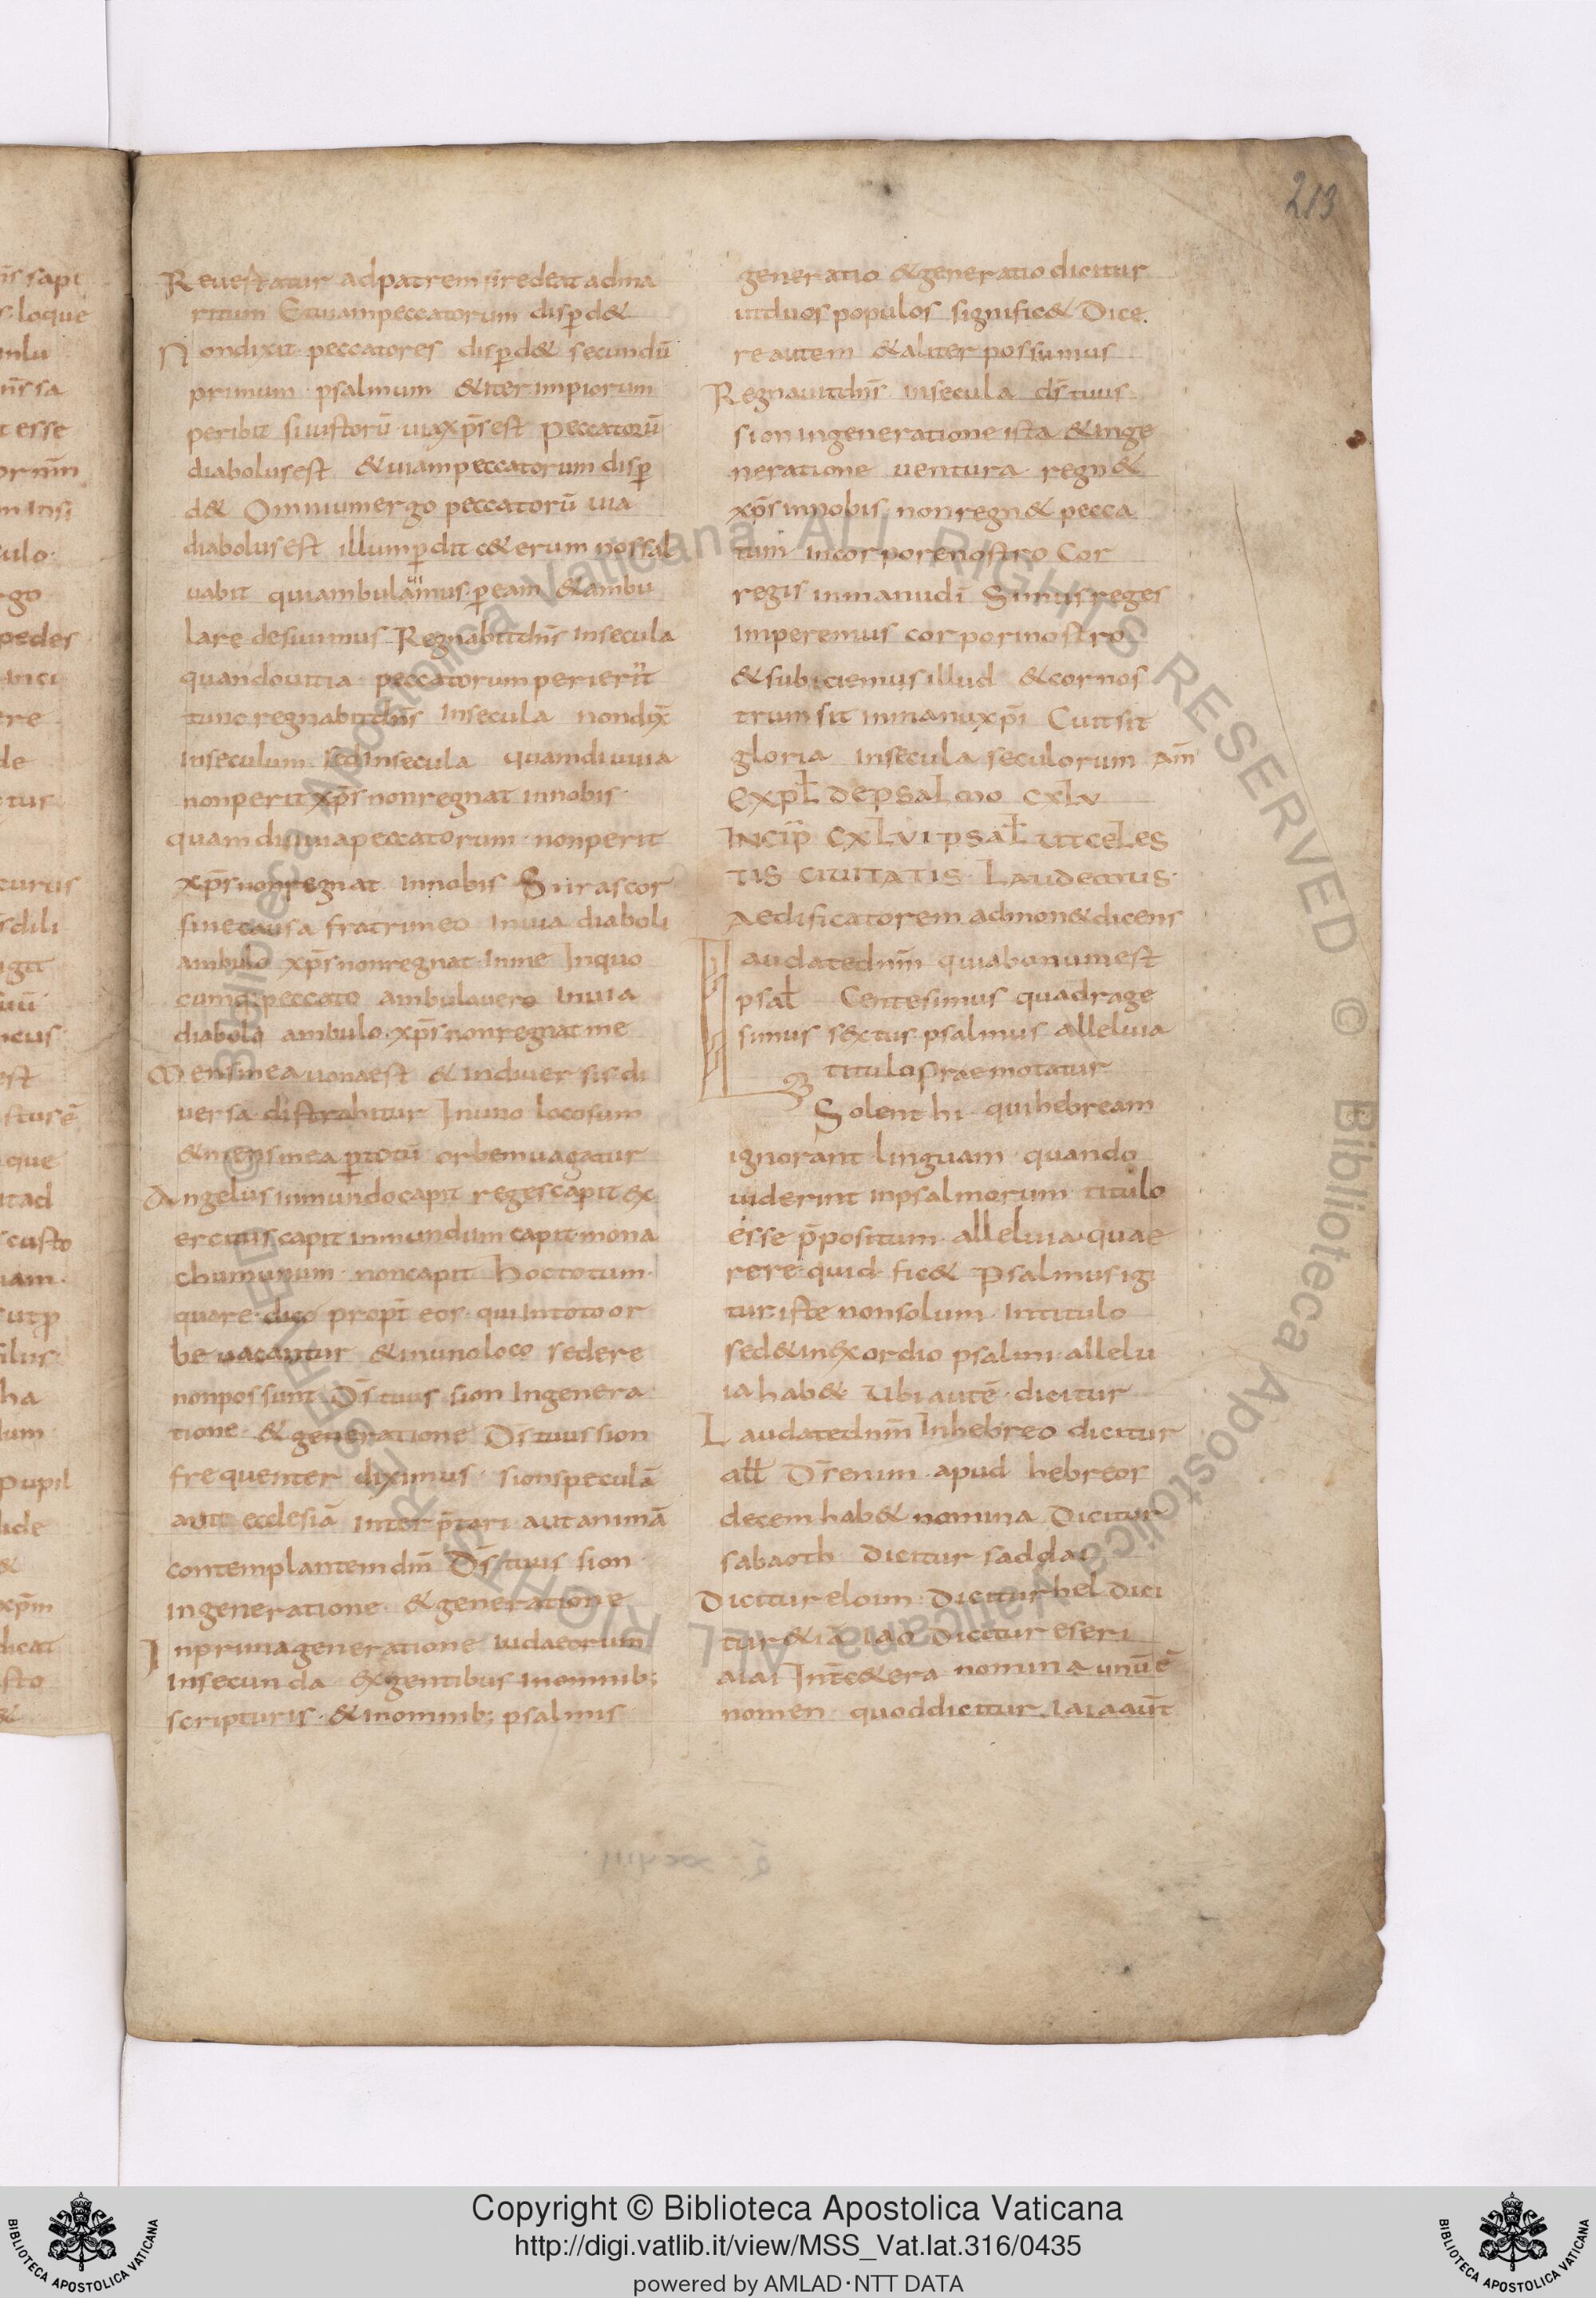 213
Reuertatur ad patrem siredeat adma
ritum Etuiampeccatorum disp̱d&
Nondixit peccatores disp̱d& secundū
primum psalmum &iter impiorum
peribit siuistorū uiaxp̄s est peccatorū
diabolusest &uiampeccatorum disp̱
d& Omniumergo peccatorū uia
diabolusest illump̱dit c&erum nossal
uabit quiambulauimus p̱eam &ambu
lare desiuimus Regnabitdn̄s Insecula
quandouitia peccatorumperierūt
tunc regnabitdn̄s Insecula nondix̄
Inseculum sedInsecula quamdiuuia
nonperit xp̄s nonregnat Innobis
quamdiuuiapeccatorum nonperit
xp̄snonregnat Innobis Siirascor
sinecausa fratrimeo Inuia diaboli
ambulo xp̄snonregnat Inme Inquo
cumq; peccato ambulauero Inuia
diaboli ambulo xp̄snonregnatme
Mensmeauonaest &Indiuersisdi
uersa distrahitur Inuno locosum
&mensmea p̱totū orbemuagatur
Angelusinmundocapit regescapit ex
ercituscapit inmundum capit mona
chumunum noncapit hoctotum
quare dico propt̄ eos quiIntotoor
be uacantur &inunoloco sedere
nonpossunt Dstuus sion Ingenera
tione &generatione Dstuussion
frequenter diximus sionspeculā
aut ecclesiā Interp̄tari autanimā
contemplantemdm̄ Ds̄tuus sion
Ingeneratione &generatione
Inprimageneratione Iudaeorum
Insecunda exgentibus Inomnib;
scripturis &inomnib; psalmis
generatio &generatio dicitur
utduos populos signific& Dice
re autem &aliter possumus
Regnauitdn̄s Insecula ds̄tuus
sion ingeneratione ista &inge
neratione uentura regn&
xp̄s innobis nonregn& pecca
tum incorporenostro Cor
regis inmanudī Simusreges
Imperemus corporinostro
&subiciemusillud &cornos
trumsit inmanuxp̄i Cuisit
gloria Insecula seculorum am̄
Expl̄ depsalmo cxlv
Incip̄ cxlvi psal̄ ut celes
tis ciuitatis Laudemus
Aedificatorem admon&dicens
Laudatednm̄ quiabonumest
psal̄ Centesimus quadrage
simus sextus psalmus alleluia
tituloPraenotatur
Solenthi quihebream
ignorant linguam quando
uiderint inpsalmorum titulo
esse p̄positum alleluia quae
rere quid sic& Psalmusigi
tur iste nonsolum Intitulo
sed&inexordio psalmi allelu
ia hab& Ubi autē dicitur
Laudatednm̄ Inhebreo dicitur
all̄ Ds̄enim apud hebreos
decemhab& nomina Dicitur
sabaoth Dicitur saddai
Dicitureloim Dicitur hel Dici
tur&iā iao Dicitur eseri
aiai Int̄c&era nomina unūē
nomen quoddicitur Iaiaaūt
Copyright © Biblioteca Apostolica Vaticana
http://digi.vatlib.it/view/MSS_Vat.lat.316/0435
powered by AMLAD·NTT DATA